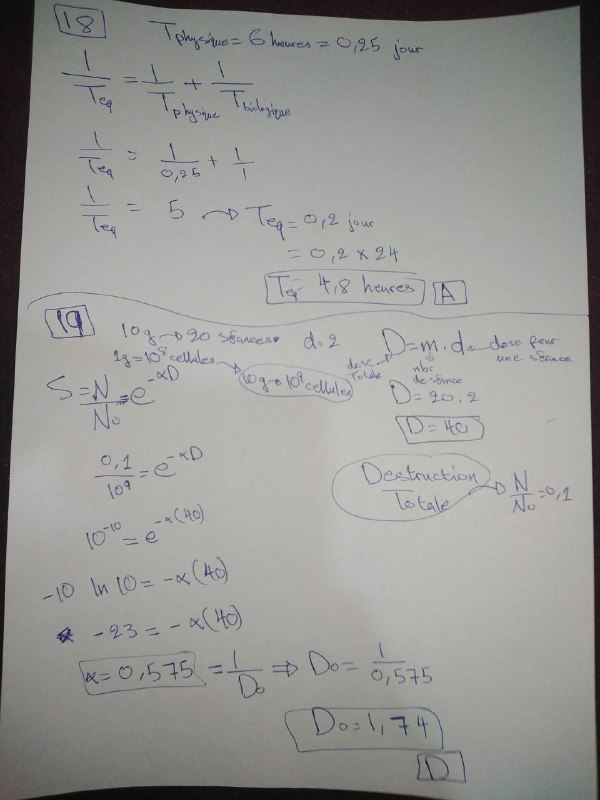 18
Tphysique = 6 heures = 0,25 jour
1/Teq = 1/Tphysique + 1/Tbiologique
1/Teq = 1/0,25 + 1/1
1/Teq = 5 → Teq = 0,2 jour
= 0,2 x 24
Teq = 4,8 heures A
19
10g → 20 séances d=2
1g = 10⁸ cellules → 10g → 10⁹ cellules
D = m . d → dose pour une séance
dose Totale
nbr de séance
D = 20 . 2
D = 40
S = N/N₀ = e^-αD
0,1/10⁹ = e^-αD
Destruction Totale → N/N₀ = 0,1
10^-10 = e^-α(40)
-10 ln 10 = -α(40)
-23 = -α(40)
α = 0,575 = 1/D₀ ⇒ D₀ = 1/0,575
D₀ = 1,74
D